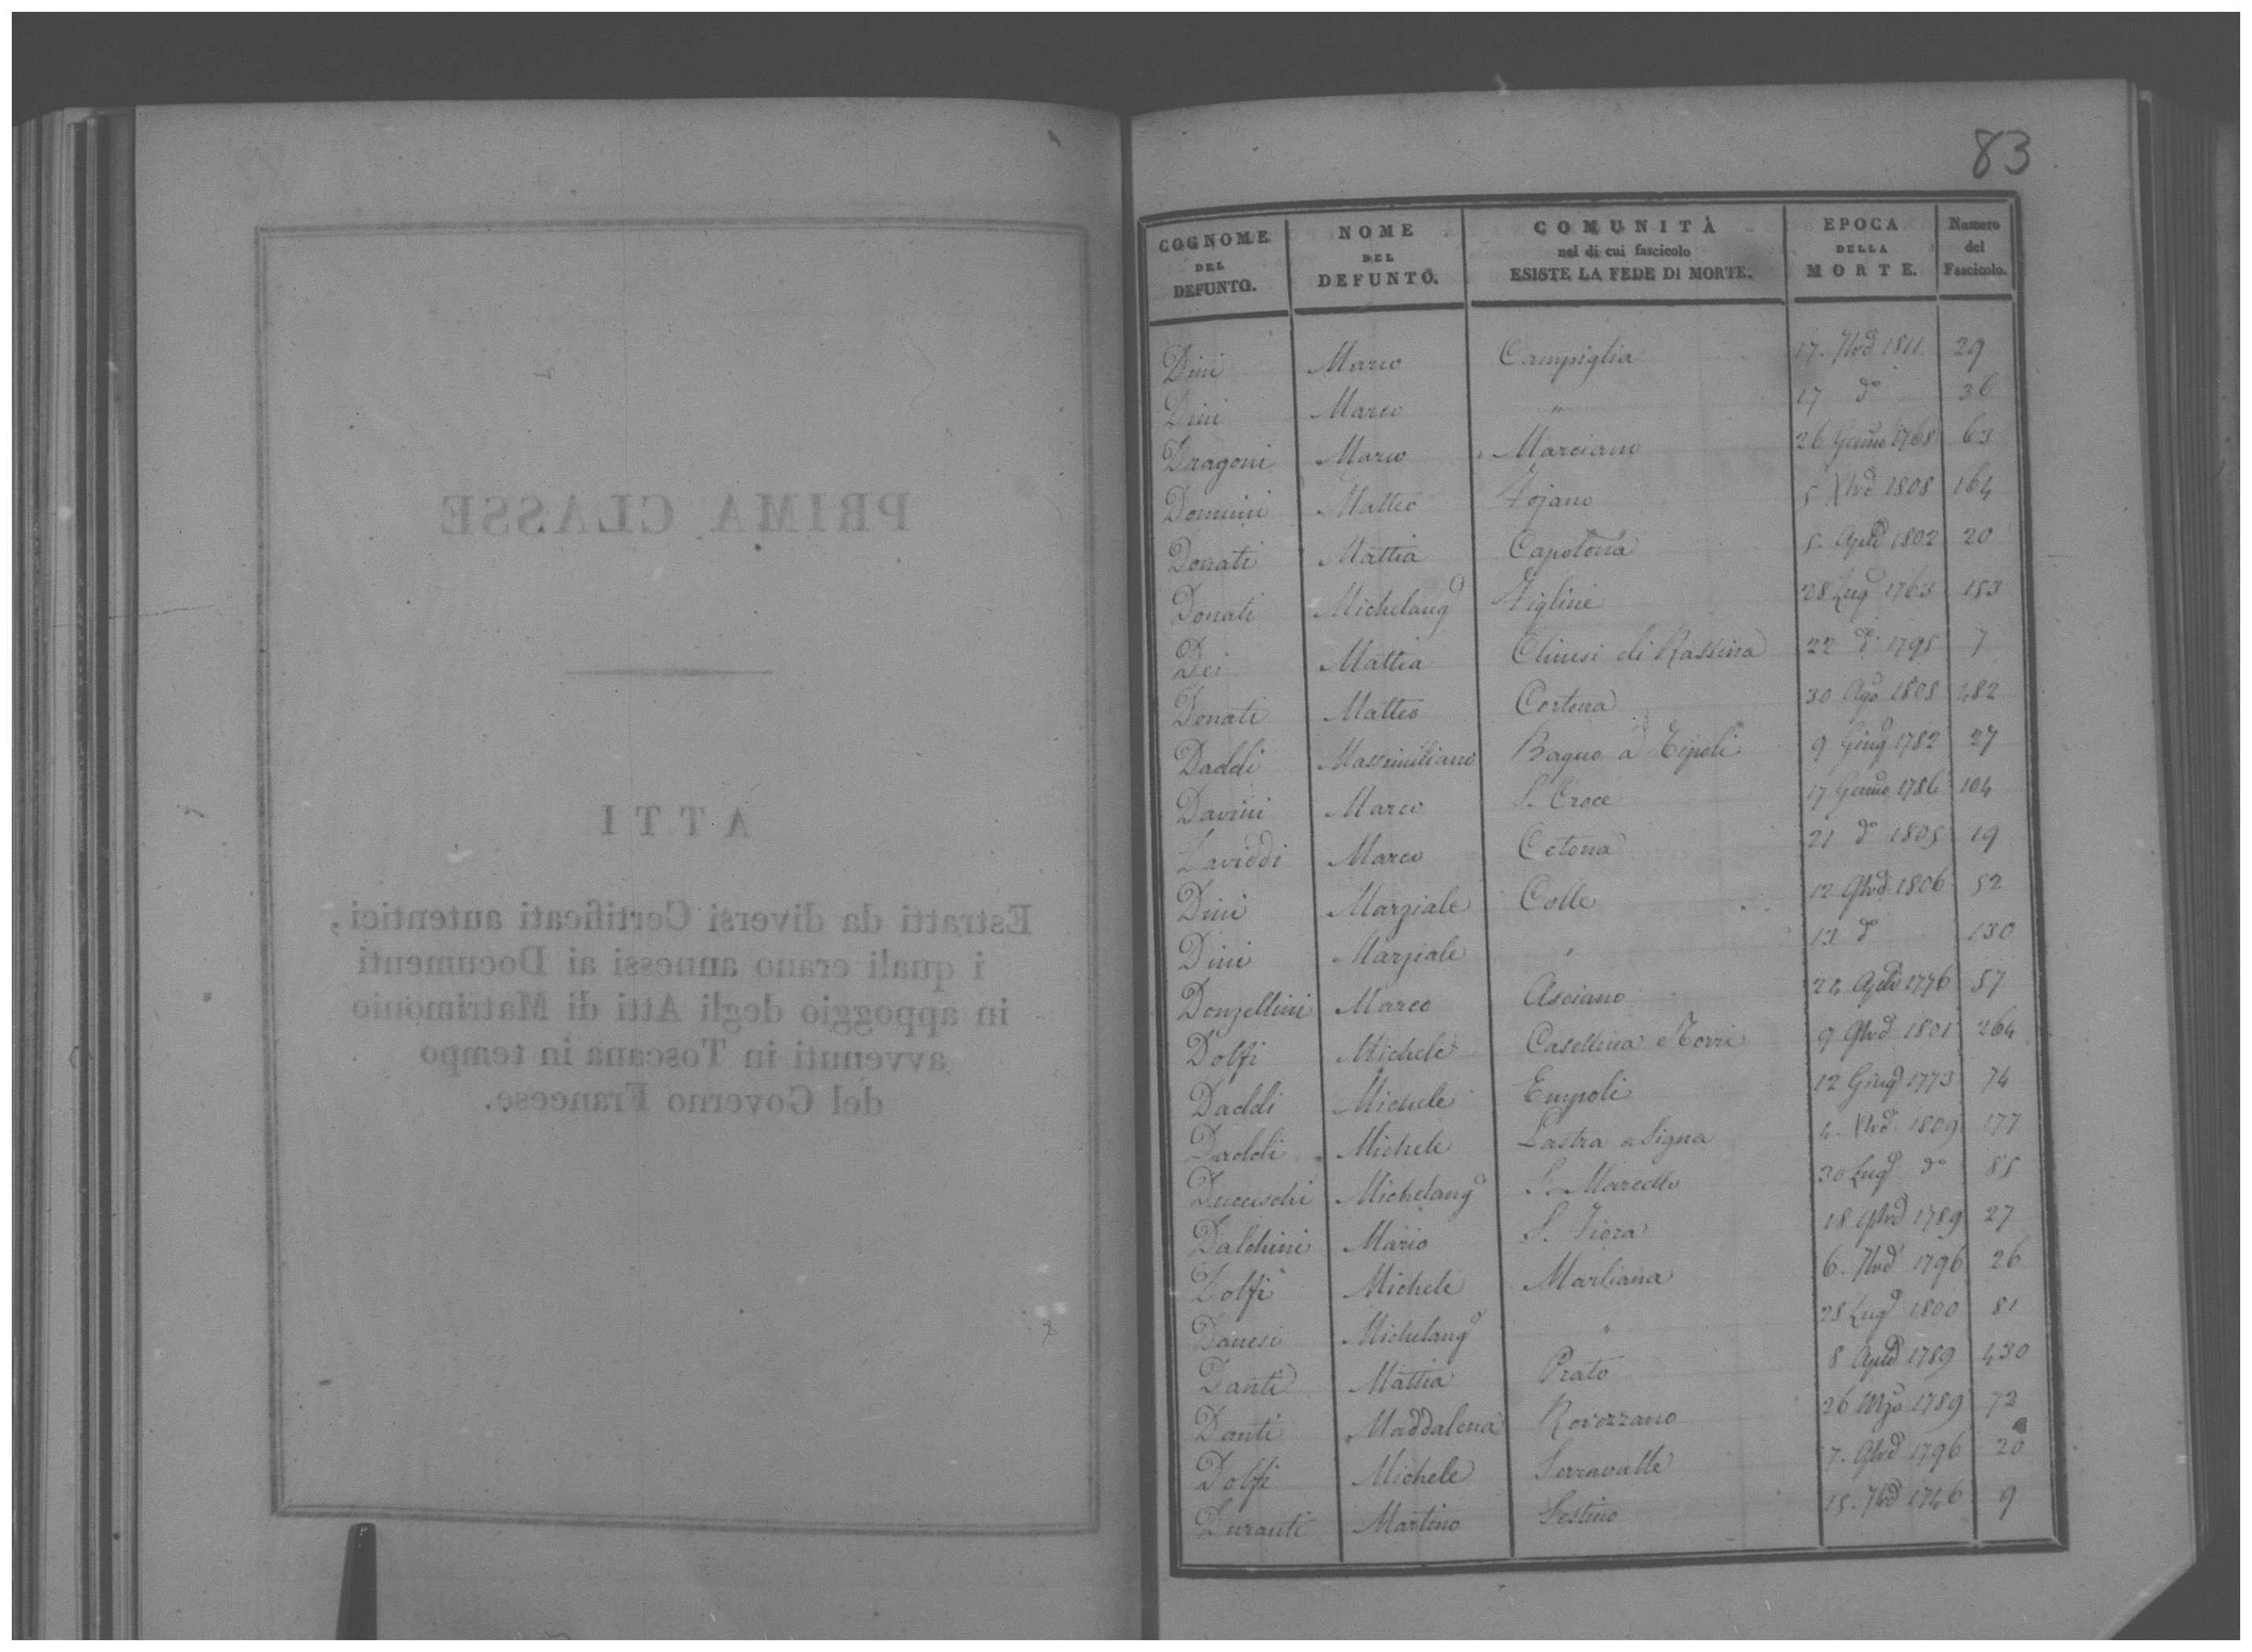 PRIMA CLASSE
ATTI
Estratti da diversi Certificati autentici,
i quali erano annessi ai Documenti
in appoggio degli Atti di Matrimonio
avvenuti in Toscana in tempo
del Governo Francese.
83
COGNOME DEL DEFUNTO. NOME DEL DEFUNTO. COMUNITÀ nel di cui fascicolo ESISTE LA FEDE DI MORTE. EPOCA DELLA MORTE. Numero del Fascicolo.
Dini Marco Campiglia 17. 7bre 1811 29
Dini Marco " 17 do 36
Dragoni Marco Marciano 26 Genno 1768 63
Domini Matteo Fojano 5 Xbre 1808 164
Donati Mattia Capolona 5. Aple 1802 20
Donati Michelango Figline 28 Lugo 1763 183
Dei Mattia Chiusi di Rassina 22 do 1795 7
Donati Matteo Cortona 30 Ago 1805 482
Daddi Massimiliano Bagno a Ripoli 9 Giugo 1782 27
Davini Marco S. Croce 17 Genno 1786 104
Daviddi Marco Cetona 21 do 1805 19
Dini Marziale Colle 12 9bre 1806 52
Dini Marziale " 13 do 130
Donzellini Marco Asciano 24 Aple 1776 57
Dolfi Michele Casellina e Torri 9 9bre 1801 264
Daddi Michele Empoli 12 Giugo 1773 74
Daddi Michele Lastra a Signa 4. Xbre 1809 177
Duceschi Michelango S. Marcello 30 Lugo do 85
Dalchini Mario S. Fiora 18 9bre 1789 27
Dolfi Michele Marliana 6. 7bre 1796 26
Danesi Michelango " 28 Lugo 1800 81
Danti Mattia Prato 8 Aple 1789 430
Danti Maddalena Rovezzano 26 Mzo 1789 72
Dolfi Michele Serravalle 7. 9bre 1796 20
Duranti Martino Sestino 15. 7bre 1746 9